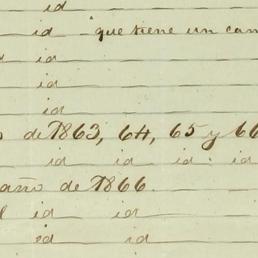 id
id que tiene un can
id
id
id
de 1863, 64, 65 y 66
id id id id
año de 1866
id id
id id